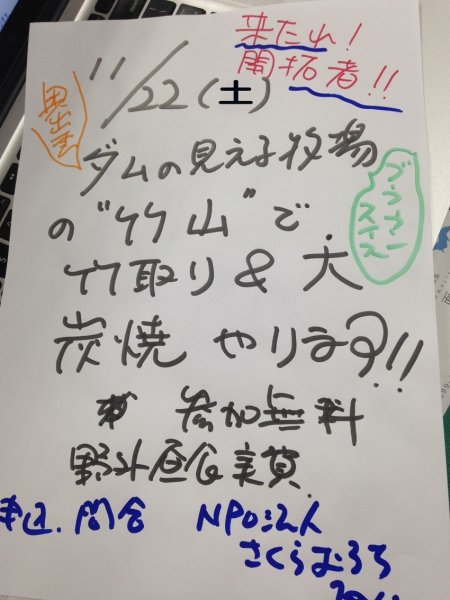 来たれ!
開拓者!!
11/22(土)
奥出雲
ダムの見える牧場
の"竹山"で
ブラウン
スイス
竹取り & 大
炭焼 やります!!
参加無料
野外昼食実費.
申込.問合 NPO法人
さくらおろち